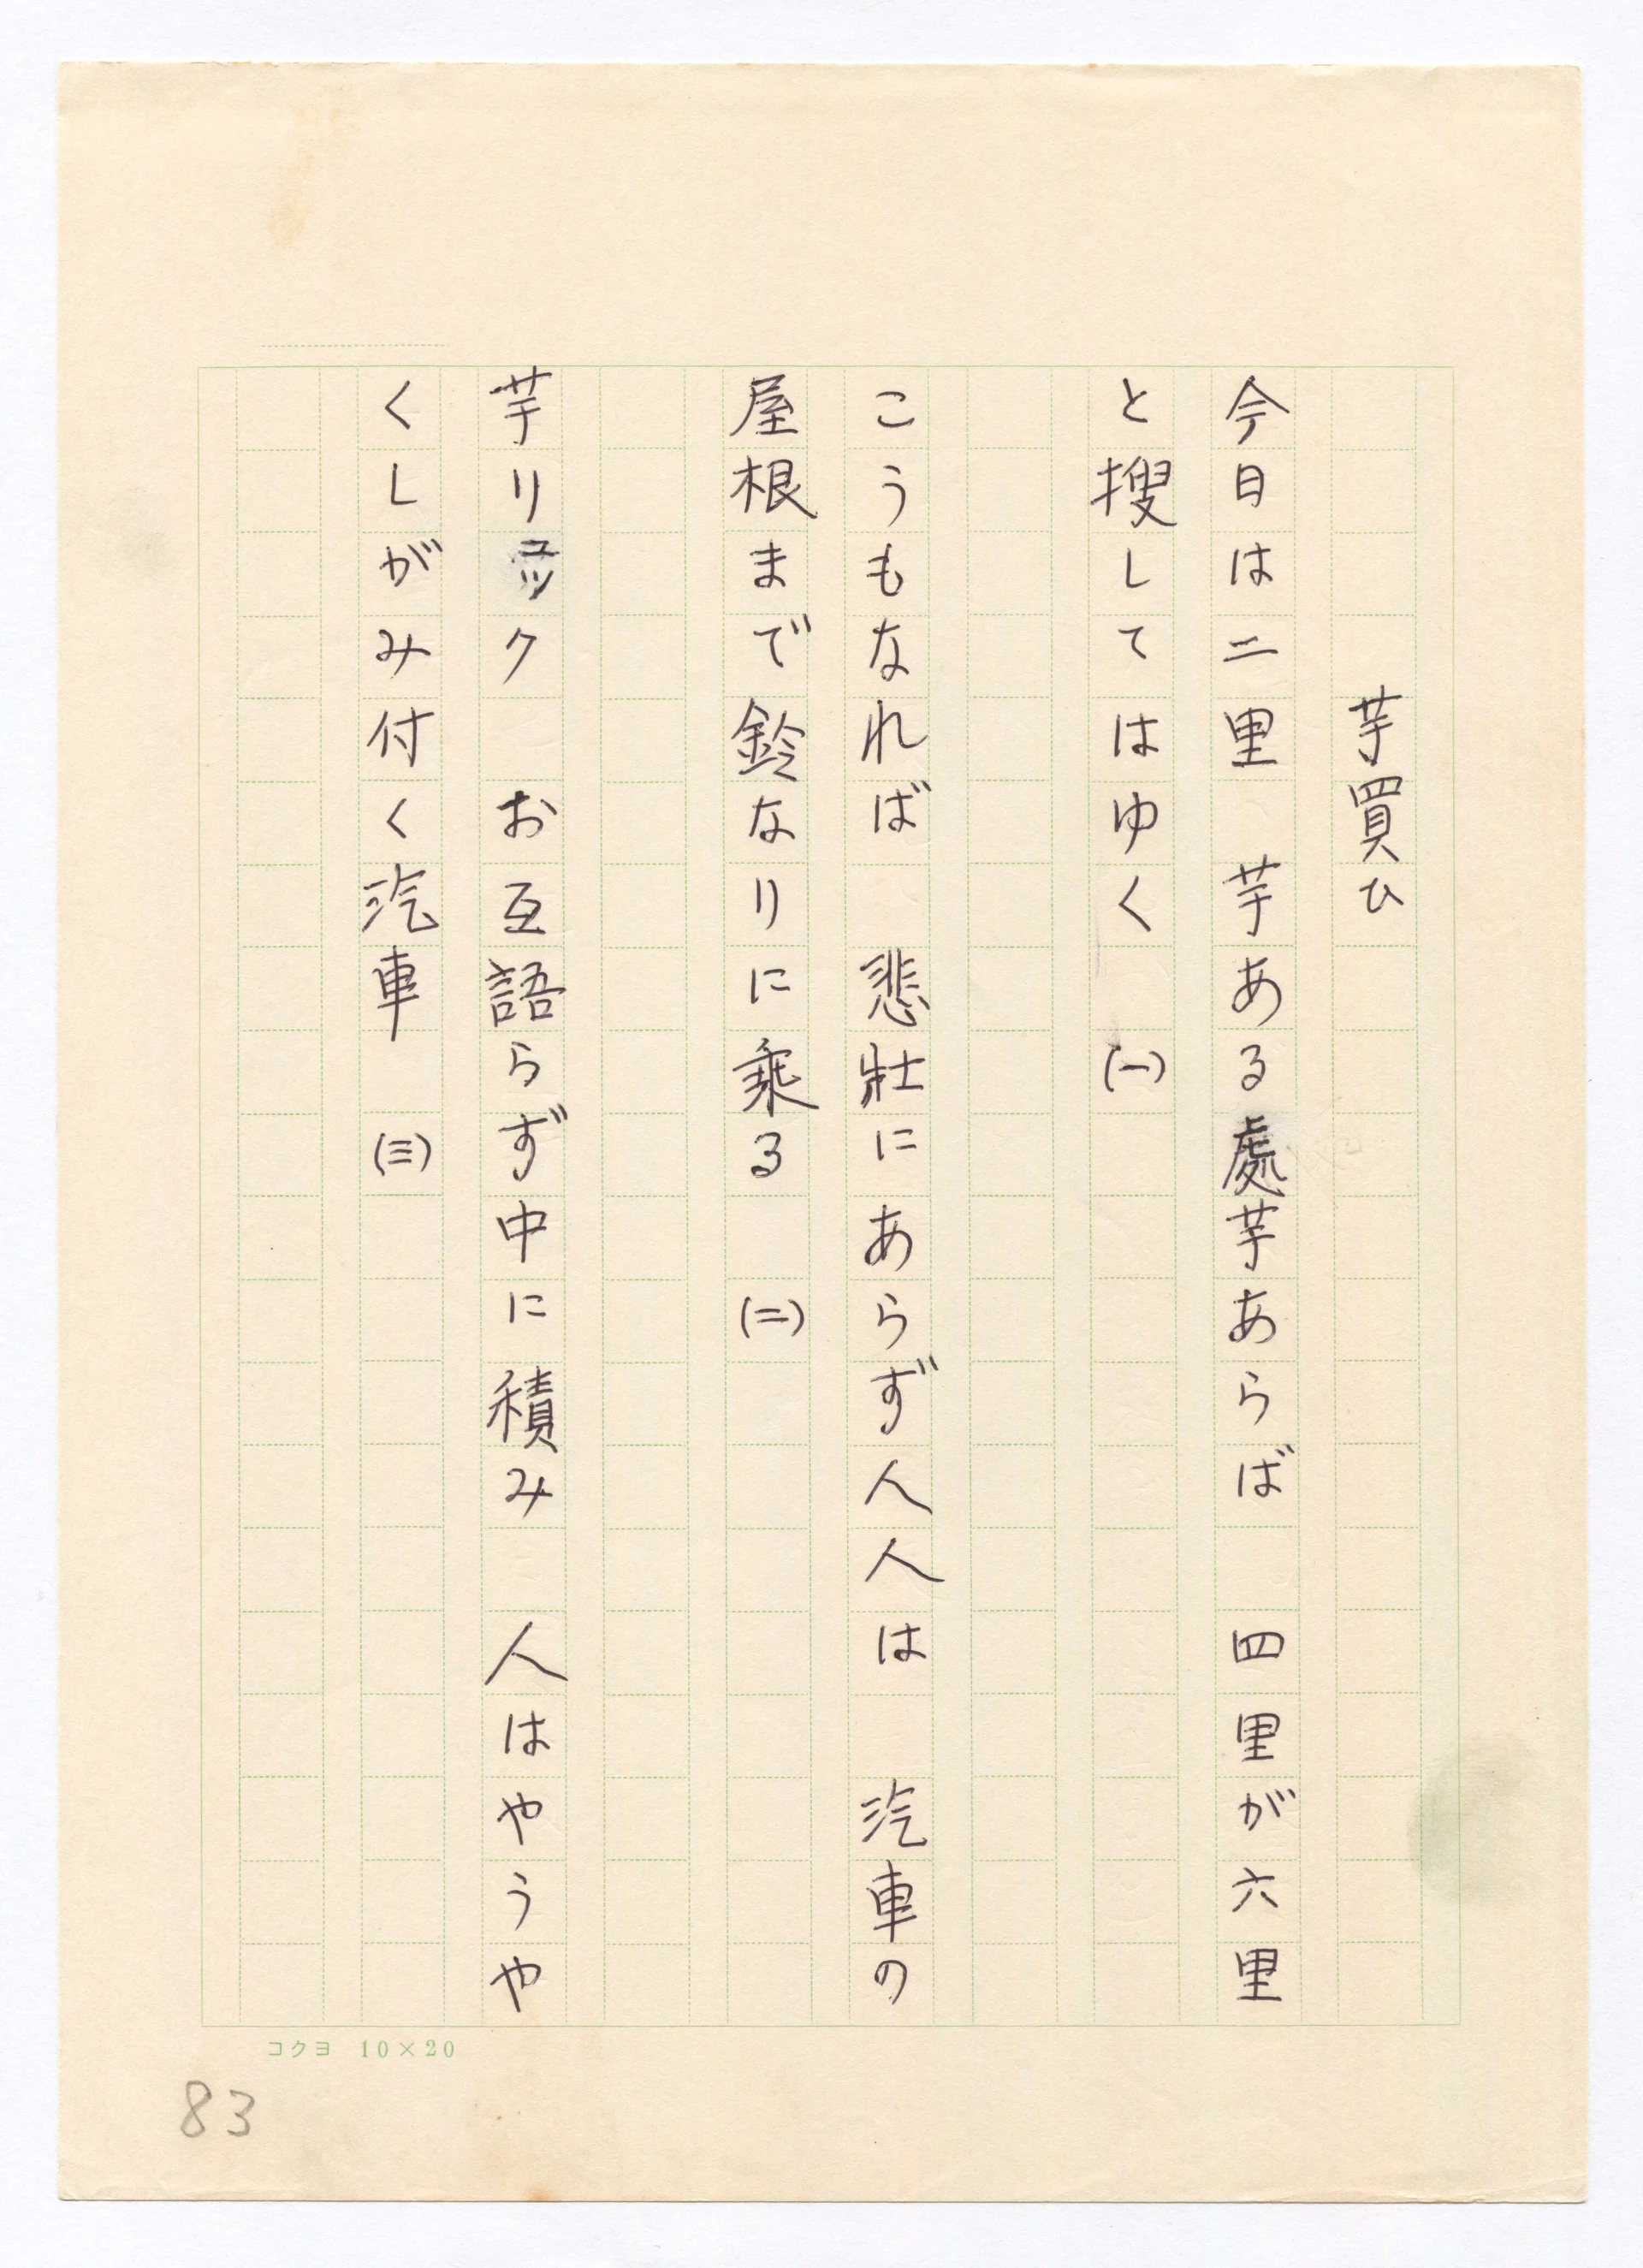 芋買ひ
今日は二里　芋ある處芋あらば　四里が六里
と搜してはゆく　(一)
こうもなれば　悲壯にあらず人人は　汽車の
屋根まで鈴なりに乘る　(二)
芋リユツク　お互語らず中に積み　人はやうや
くしがみ付く汽車　(三)
コクヨ 10×20
83